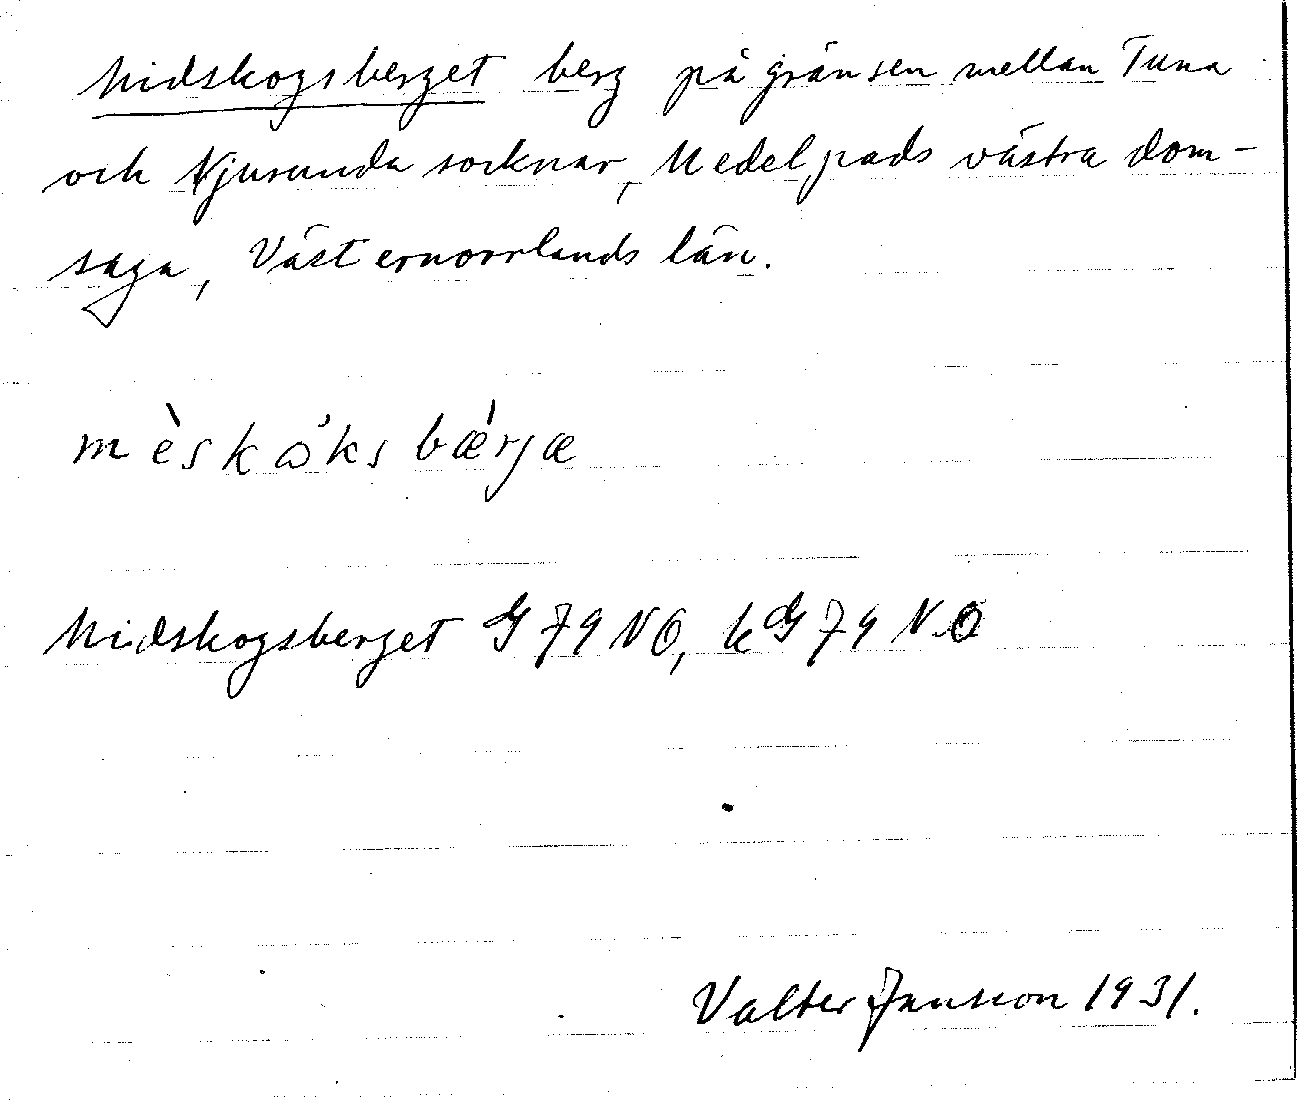 Midskogsberget berg på gränsen mellan Tuna
och Njurunda socknar, Medelpads västra dom-
saga, Västernorrlands län.
mèskɷ́ksbǽrjæ
Midskogsberget G 79 NO, kG 79 NO
Valter Jansson 1931.